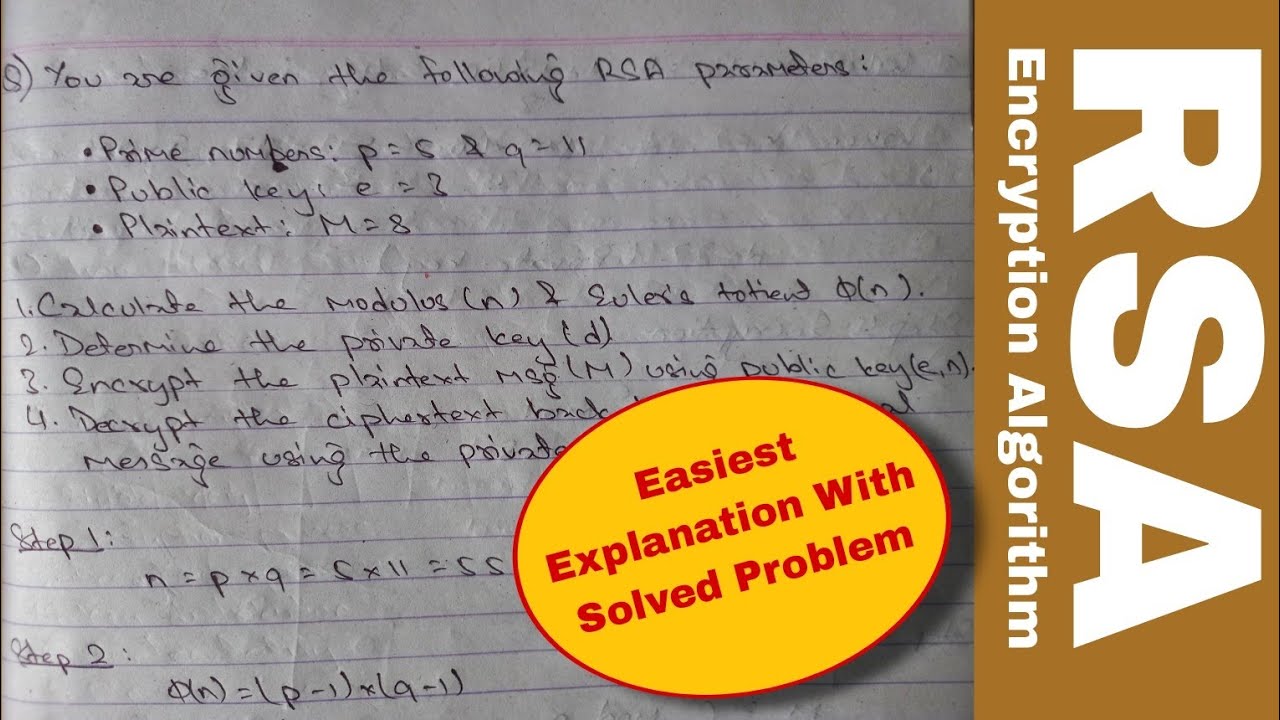 Q) You are given the following RSA parameters:
• Prime numbers: p = 5 & q = 11
• Public key: e = 3
• Plaintext: M = 8
1. Calculate the modulus (n) & Euler's totient Φ(n).
2. Determine the private key (d)
3. Encrypt the plaintext Msg (M) using public key (e, n).
4. Decrypt the ciphertext back
message using the private
Step 1:
n = p x q = 5 x 11 = 55
Step 2:
Φ(n) = (p - 1) x (q - 1)
Easiest
Explanation With
Solved Problem
RSA
Encryption Algorithm